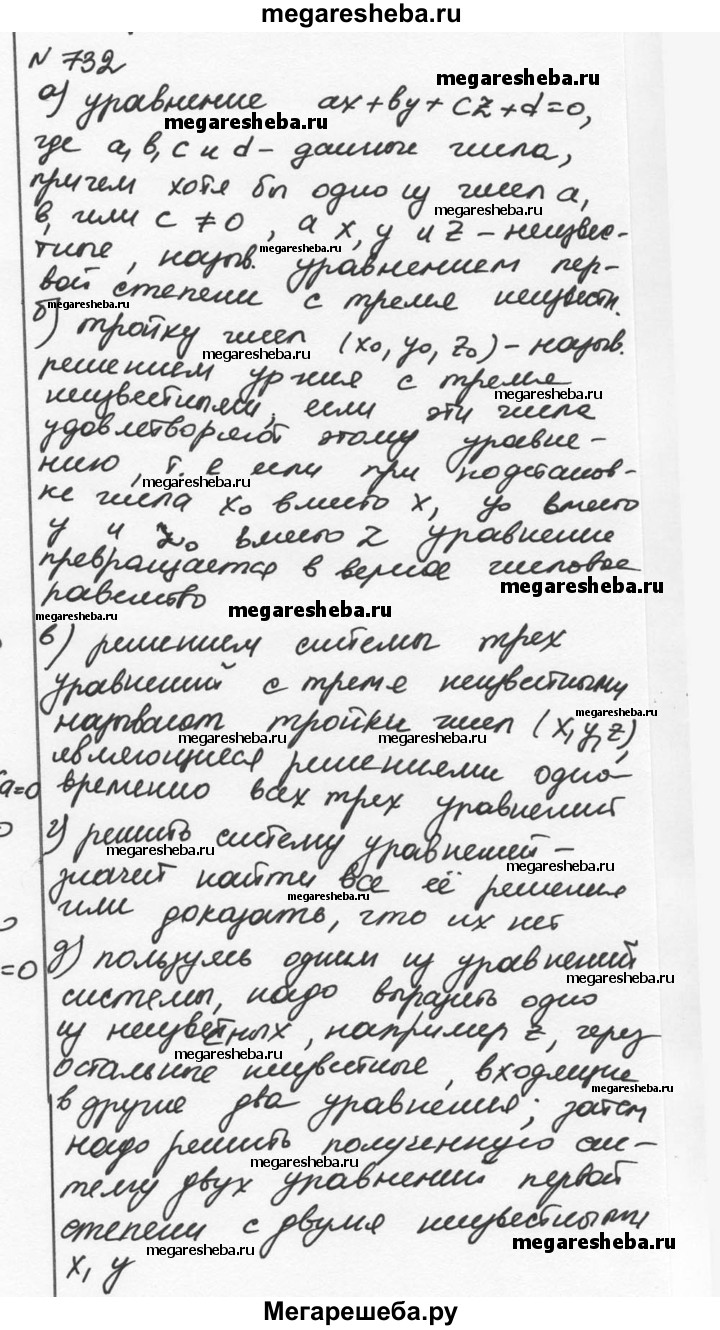 megaresheba.ru
N 732
а) уравнение ax+by+cz+d=0,
megaresheba.ru
megaresheba.ru
где a, b, c и d - данные числа,
причем хотя бы одно из чисел a,
megaresheba.ru
b, или c ≠ 0, а x, y и z - неизвес-
тные, назыв. уравнением пер-
megaresheba.ru
вой степени с тремя неизвестн.
megaresheba.ru
б) тройку чисел (x₀, y₀, z₀) - назыв.
megaresheba.ru
решением ур-ния с тремя
неизвестными, если эти числа
megaresheba.ru
удовлетворяют этому уравне-
нию, т. е если при подстанов-
megaresheba.ru
ке числа x₀ вместо x, y₀ вместо
y и z₀ вместо z уравнение
превращается в верное числовое
megaresheba.ru
равенство
megaresheba.ru
megaresheba.ru
в) решением системы трех
уравнений с тремя неизвестными
называют тройки чисел (x, y, z),
megaresheba.ru
megaresheba.ru
являющиеся решениями одно-
a=0
временно всех трех уравнений
г) решить систему уравнений -
megaresheba.ru
megaresheba.ru
значит найти все её решения
megaresheba.ru
или доказать, что их нет
=0
д) пользуясь одним из уравнений
megaresheba.ru
системы, надо выразить одно
из неизветных, например z, через
megaresheba.ru
остальные неизвестные, входящие
megaresheba.ru
в другие два уравнения; затем
надо решить полученную сис-
megaresheba.ru
тему двух уравнений первой
степени с двумя неизвестными
megaresheba.ru
megaresheba.ru
x, y
Мегарешеба.ру